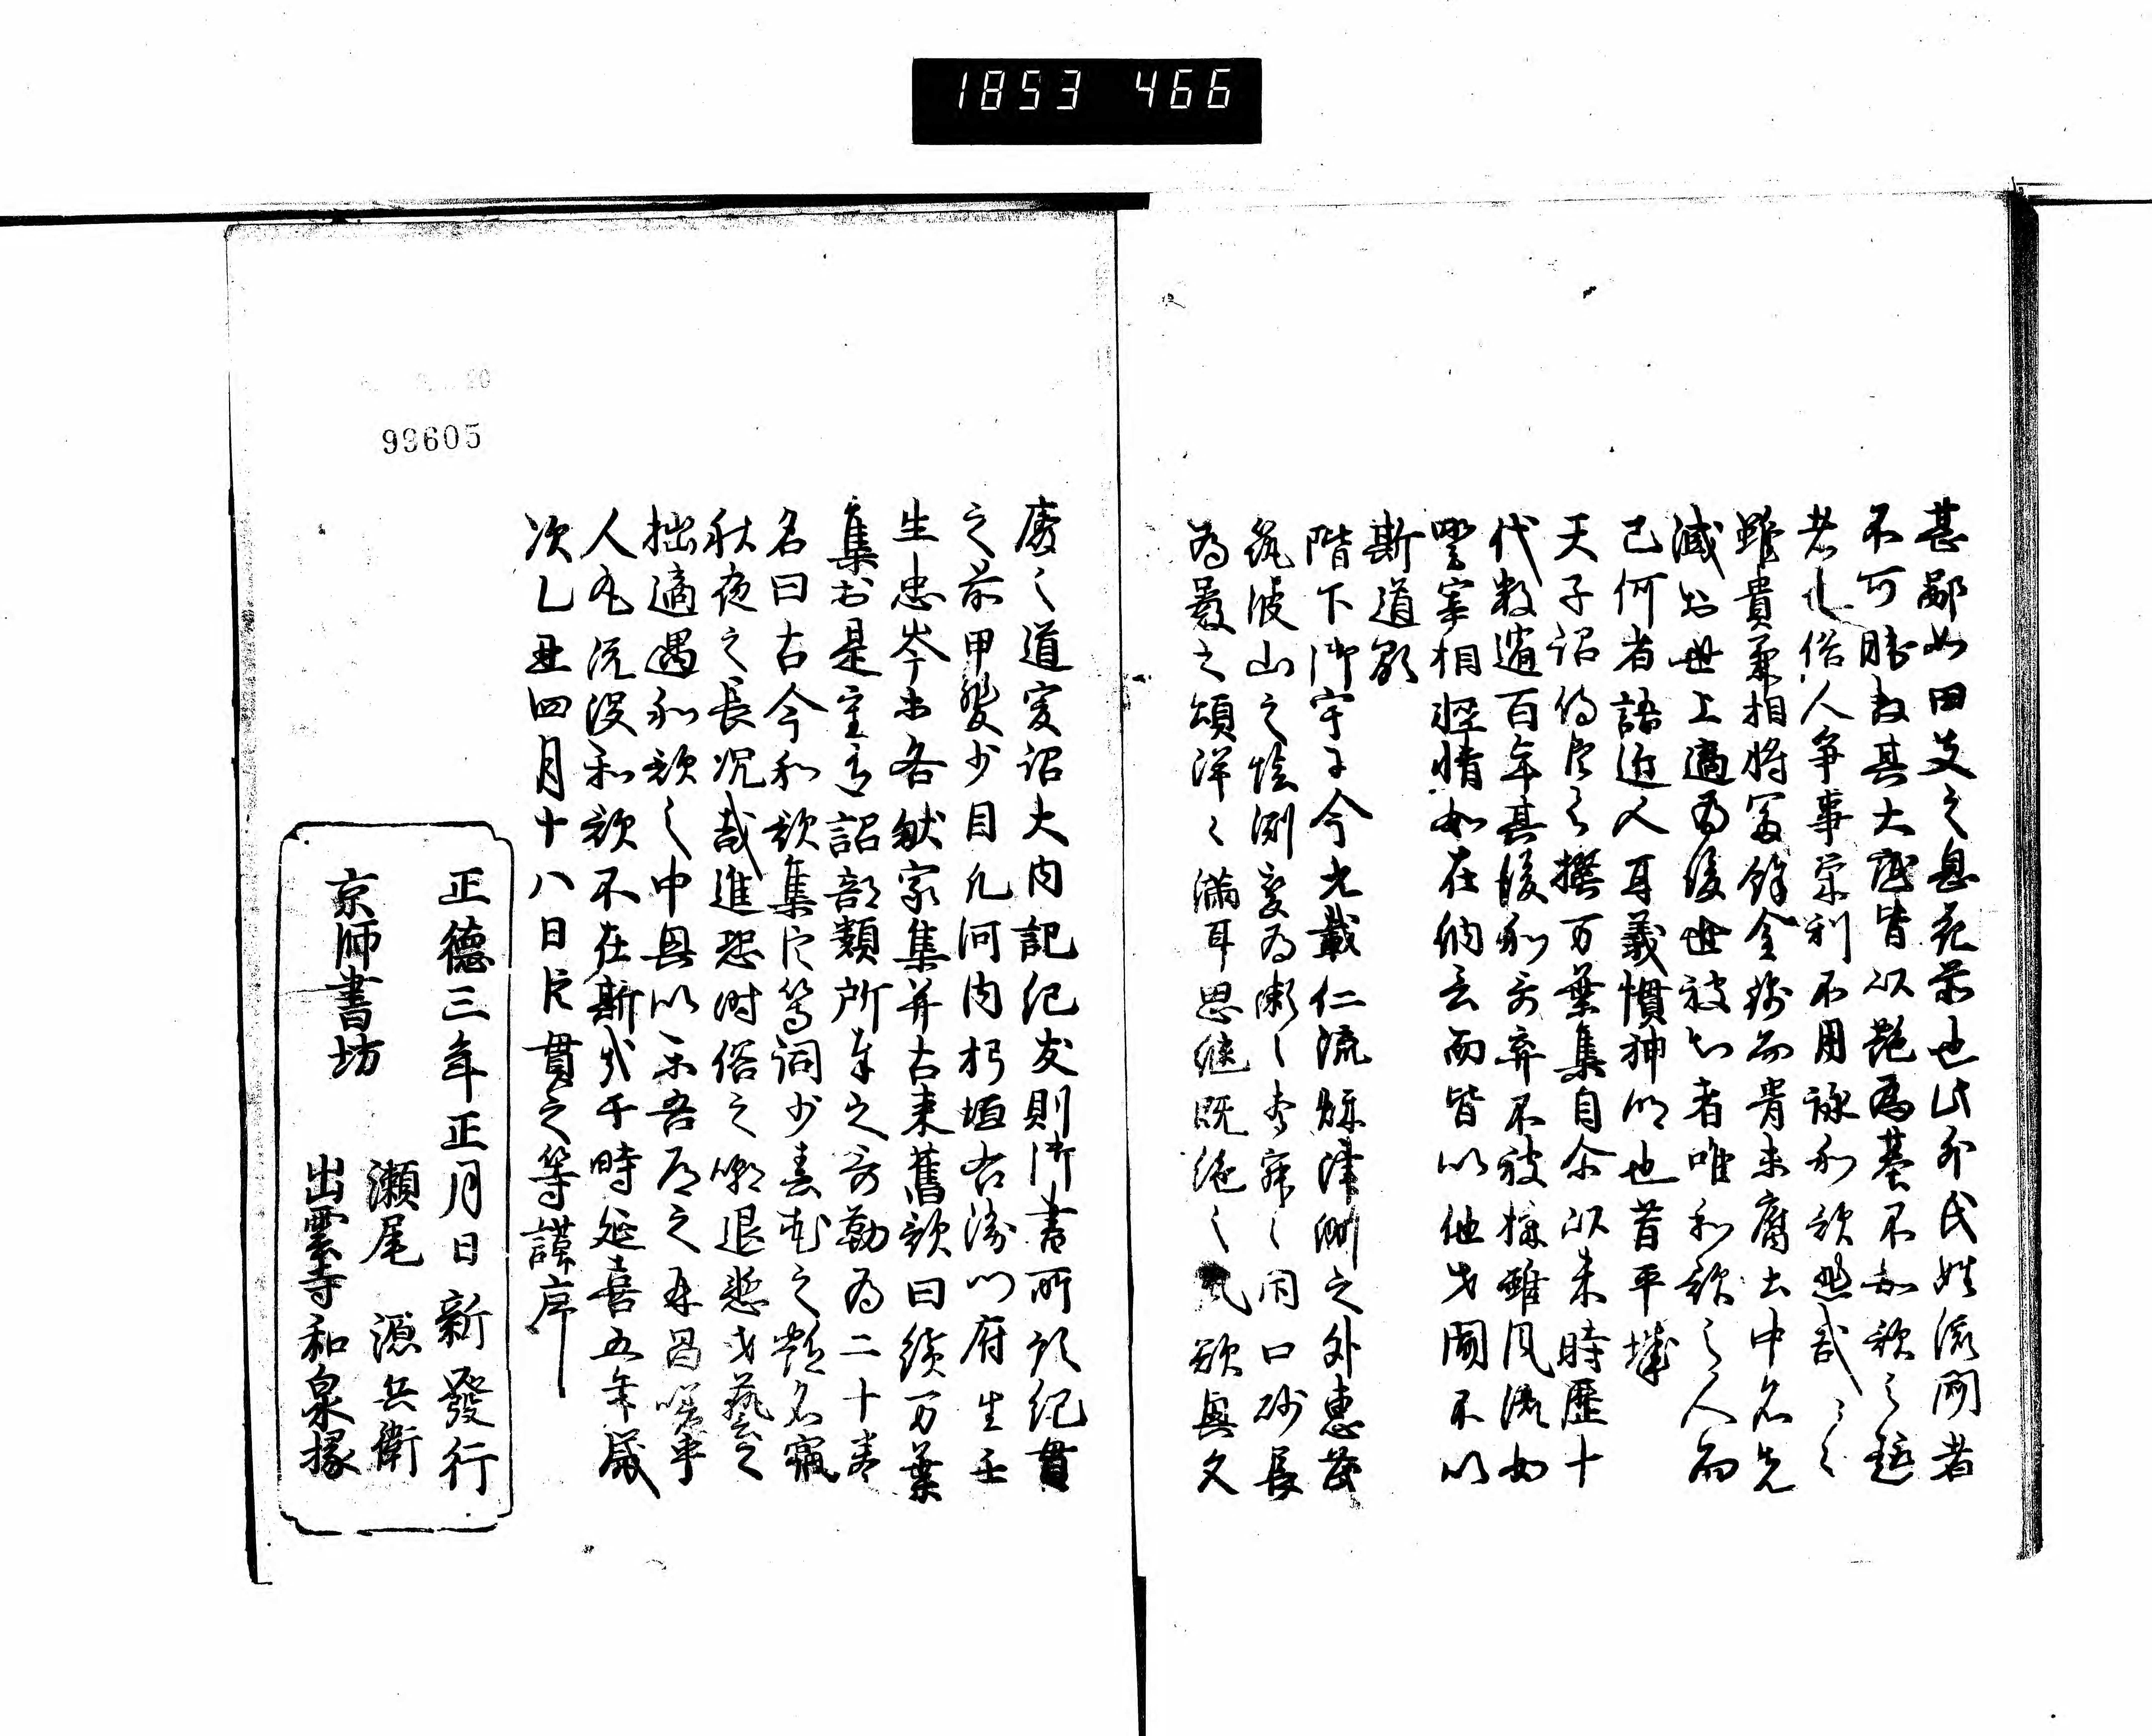 1853 466
甚鄙如田夫之息花前也此外氏姓流聞者
不可勝数其大底皆以艶為基不知歌之趣
者也俗人争事栄利不用詠和歌悲哉〻〻
雖貴兼相将富餘金銭而骨未腐土中名先
滅於世上適為後世被知者唯和歌之人而
已何者語近人耳義慣神明也昔平城
天子詔侍臣令撰万葉集自尓以来時歴十
代数過百年其後和哥弃不被採雖風流如
野宰相軽情如在納言而皆以他才聞不以
斯道顕
陛下御宇于今九載仁流秋津洲之外恵茂
筑波山之陰渕変為瀬之声寂〻閇口砂長
為巌之頌洋〻満耳思継既絶之風欲興久
廃之道爰詔大内記紀友則御書所預紀貫
之前甲斐少目凡河内躬恒右衛門府生壬
生忠岑等各献家集并古来舊歌曰続万葉
集於是重有詔部類所奉之哥勒為二十巻
名曰古今和歌集臣等詞少春花之艶名竊
秋夜之長况哉進恐時俗之嘲退慙才藝之
拙適遇和歌之中興以楽吾道之再昌嗟乎
人丸既没和歌不在斯哉于時延喜五年歳
次乙丑四月十八日臣貫之等謹序
正德三年正月日新發行
京師書坊
瀬尾 源兵衛
出雲寺和泉掾
99605